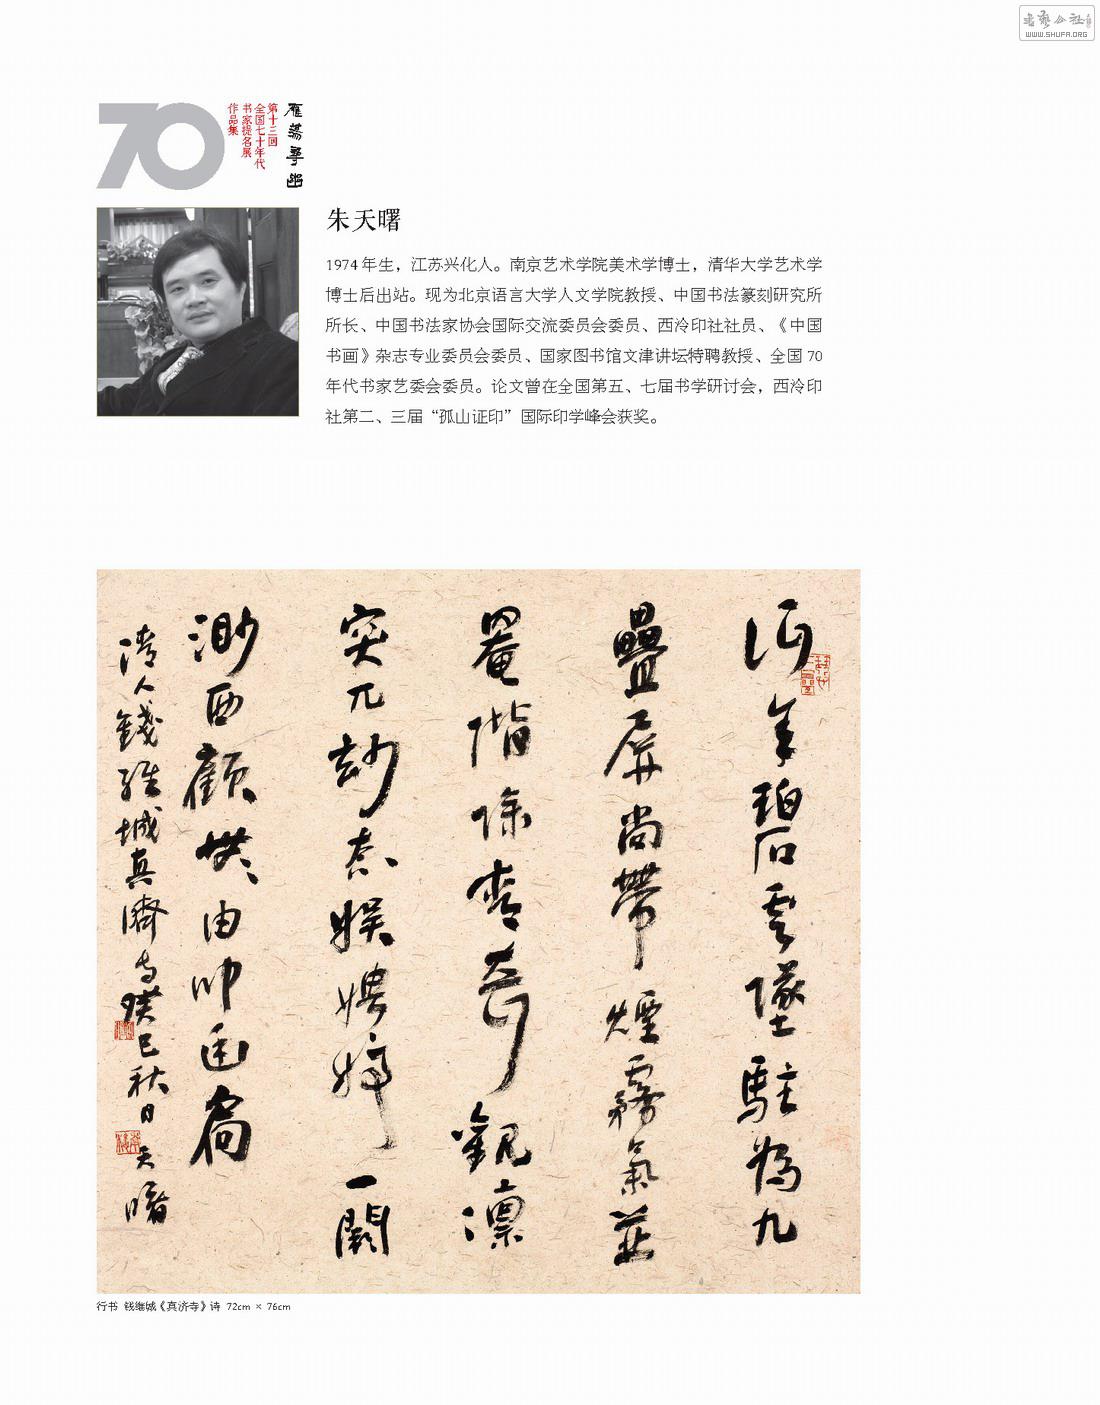 书法公社
WWW.SHUFA.ORG
70
雁荡寻幽
第十三回
全国七十年代
书家提名展
作品集
朱天曙
1974年生，江苏兴化人。南京艺术学院美术学博士，清华大学艺术学
博士后出站。现为北京语言大学人文学院教授、中国书法篆刻研究所
所长、中国书法家协会国际交流委员会委员、西泠印社社员、《中国
书画》杂志专业委员会委员、国家图书馆文津讲坛特聘教授、全国70
年代书家艺委会委员。论文曾在全国第五、七届书学研讨会，西泠印
社第二、三届“孤山证印”国际印学峰会获奖。
何年碧雲墜駐為九
疊屏尚帶煙霧氣並
罨階除青奇觀凛
突兀妙态娱娉婷一闕
渺西顧無由叩函扃
清人錢維城真濟寺癸巳秋日天曙
行书 钱维城《真济寺》诗 72cm × 76cm